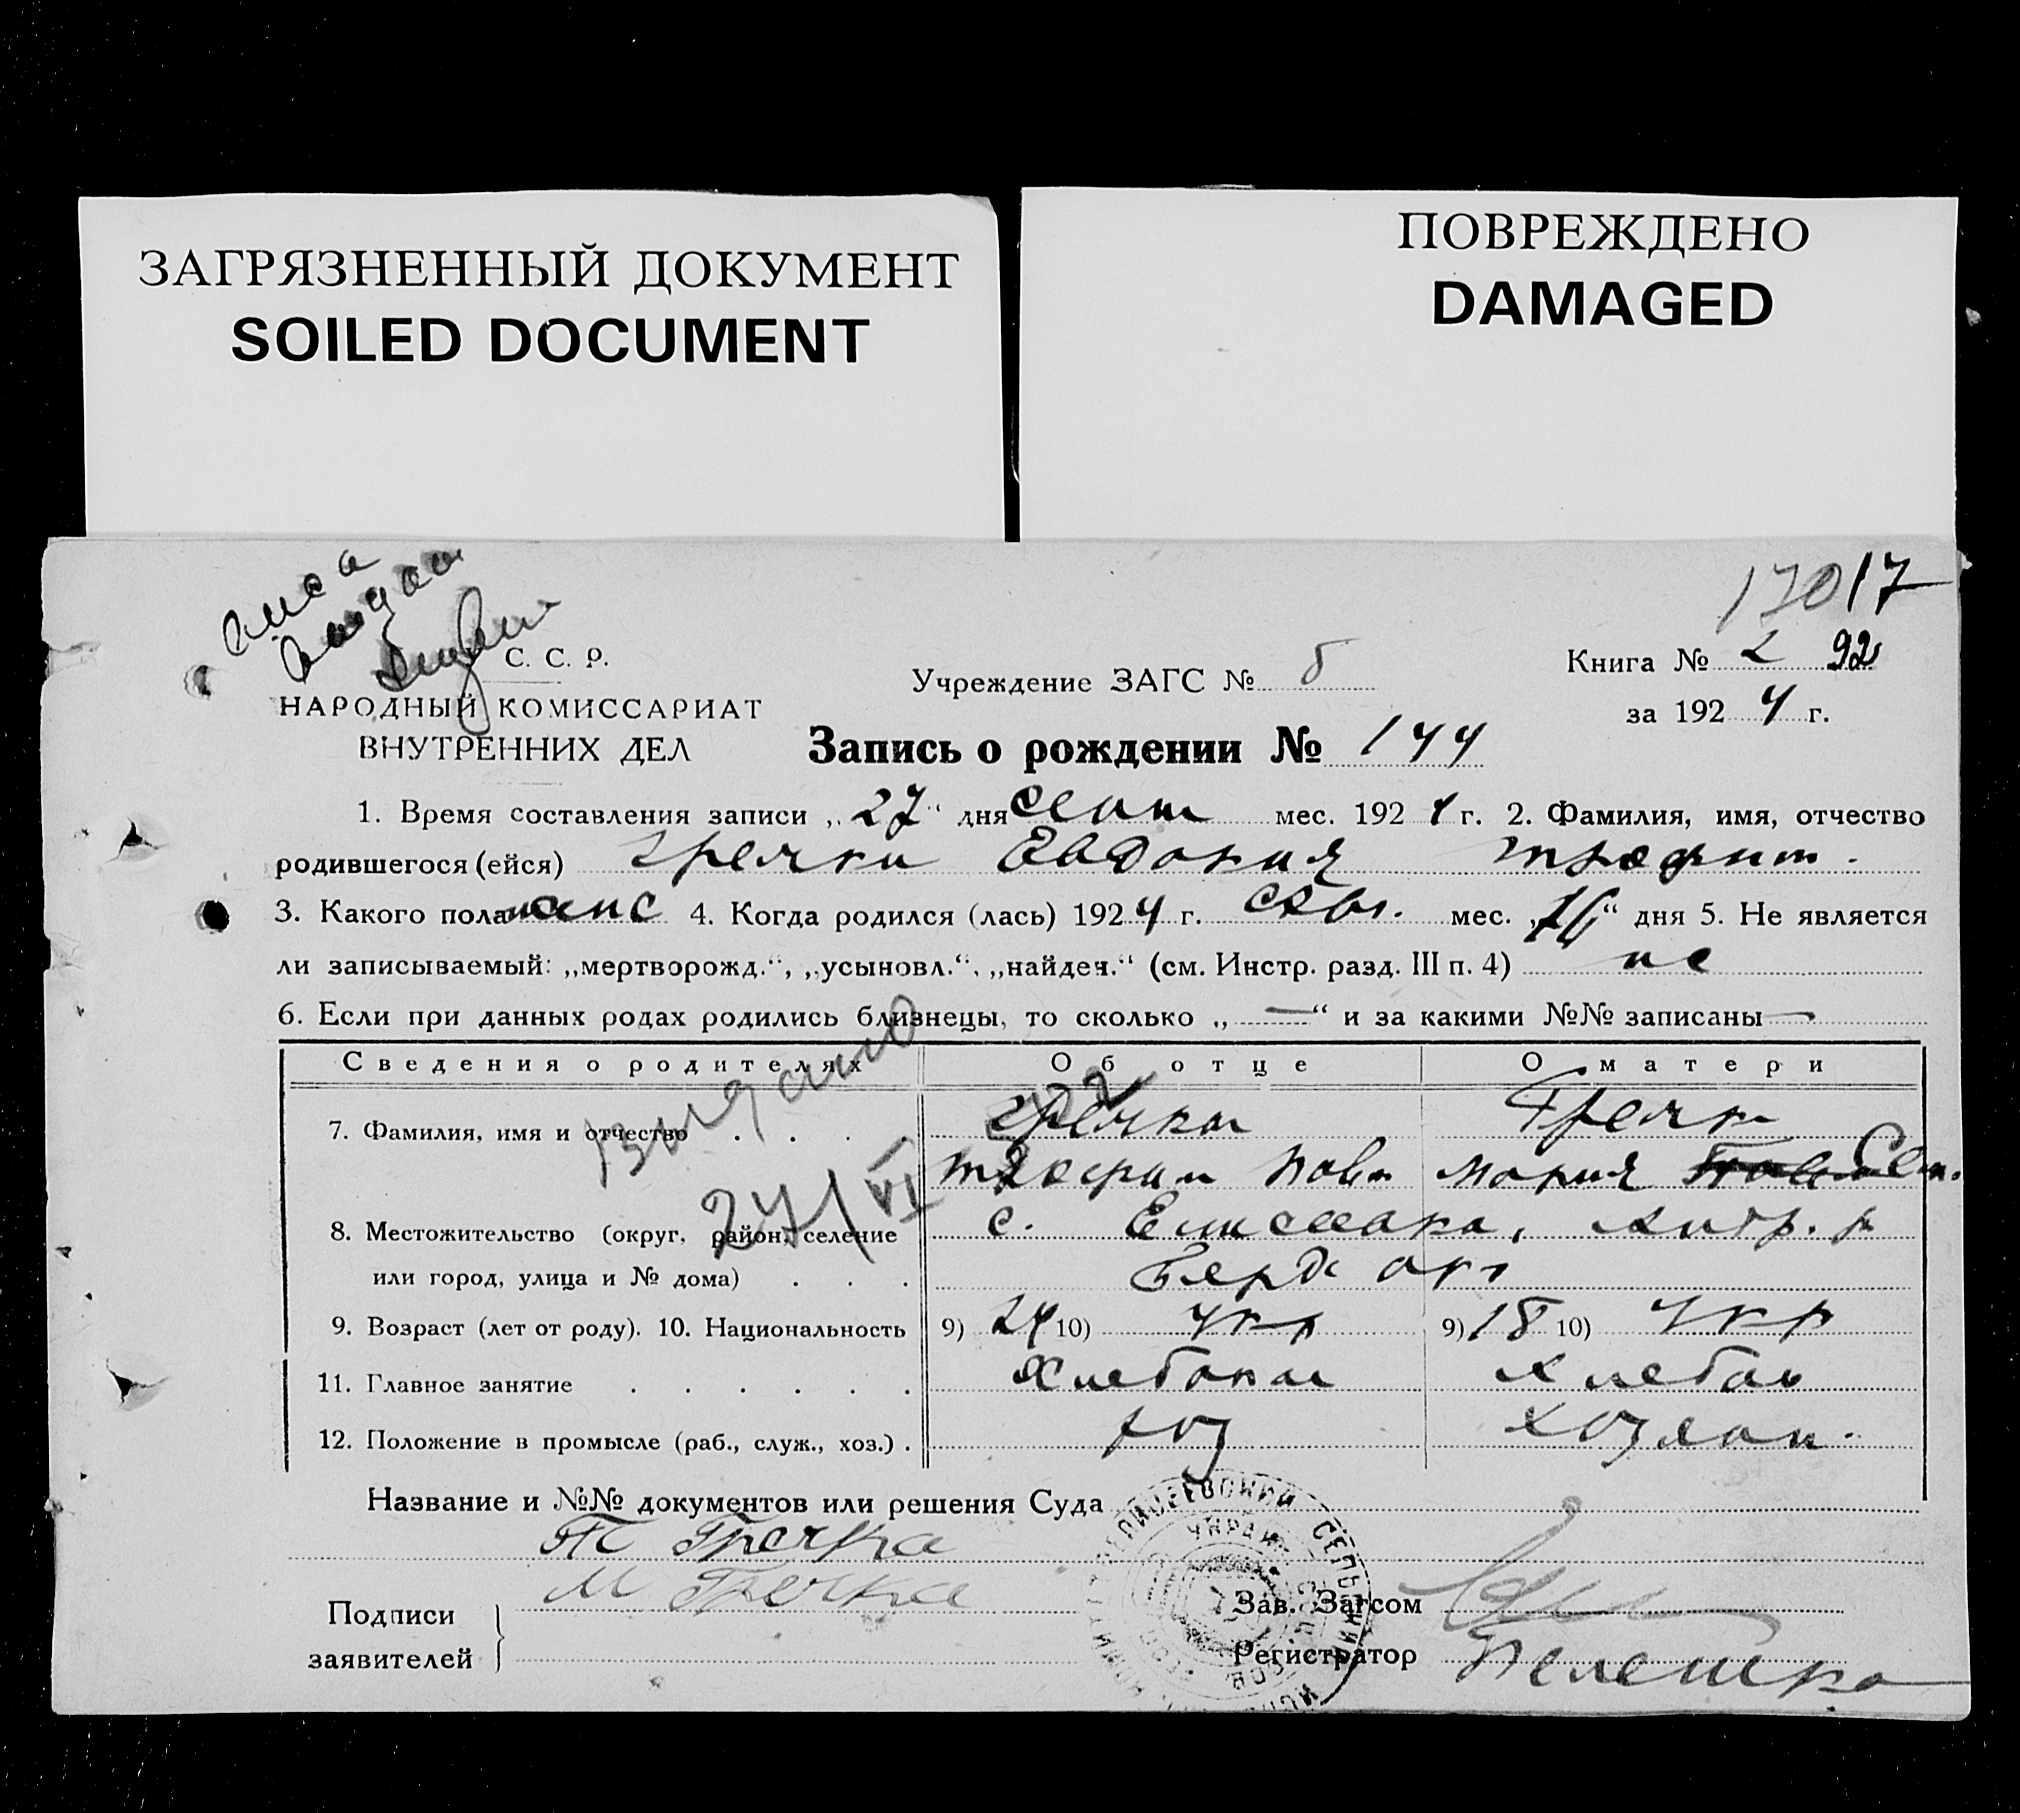 ЗАГРЯЗНЕННЫЙ ДОКУМЕНТ
SOILED DOCUMENT
ПОВРЕЖДЕНО
DAMAGED
17017
С. С. Р.
НАРОДНЫЙ КОМИССАРИАТ
ВНУТРЕННИХ ДЕЛ
Учреждение ЗАГС №
Книга № 2 92
за 192 4 г.
Запись о рождении № 144
1. Время составления записи „27“ дня сент мес. 192 4 г. 2. Фамилия, имя, отчество
родившегося (ейся) Гречка Евдокия Трофим.
3. Какого пола женс 4. Когда родился (лась) 192 4 г. мес. „16“ дня 5. Не является
ли записываемый: „мертворожд.“, „усыновл.“, „найден.“ (см. Инстр. разд. III п. 4) не
6. Если при данных родах родились близнецы, то сколько „—“ и за какими №№ записаны —
Сведения о родителях Об отце О матери
7. Фамилия, имя и отчество . . . Гречка Гречк
Трофим Павл Мария Сем.
видано
27/VI
8. Местожительство (округ, район, селение с. Елисеевка,
или город, улица и № дома) . . . Бердс окр
9. Возраст (лет от роду). 10. Национальность 9) 24 10) укр 9) 18 10) укр
11. Главное занятие . . . . . . Хлебопаш Хлебоп
12. Положение в промысле (раб., служ., хоз.) . хоз
Название и №№ документов или решения Суда
Т Гречка
М Гречка
Подписи
заявителей
Зав. Загсом
Регистратор Пелешко
ЕЛИСЕЕВСКИЙ СЕЛЬ